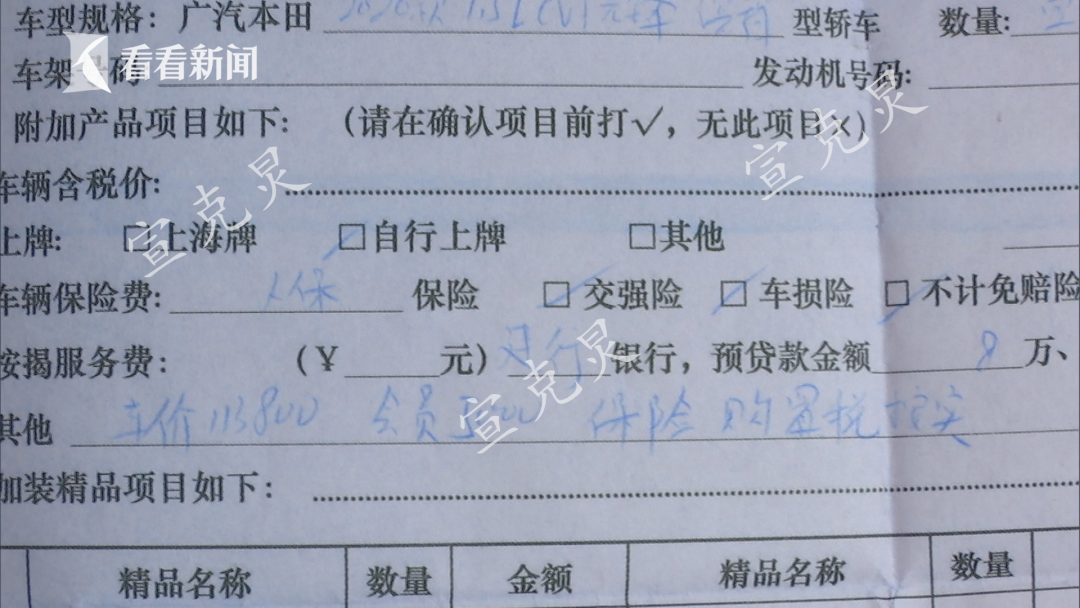 车型规格：广汽本田 2020款 1.5L CVT 型轿车 数量：
看看新闻
车架号码： 发动机号码：
附加产品项目如下：（请在确认项目前打√，无此项目×）
车辆含税价：
上牌： □上海牌 □自行上牌 □其他
车辆保险费： 人保 保险 □交强险 □车损险 □不计免赔险
按揭服务费： （￥ 元） 银行，预贷款金额 8 万、
其他 车价113800 会员 保险 购置税按实
加装精品项目如下：
精品名称 数量 金额 精品名称 数量
宣克灵
宣克灵
宣克灵